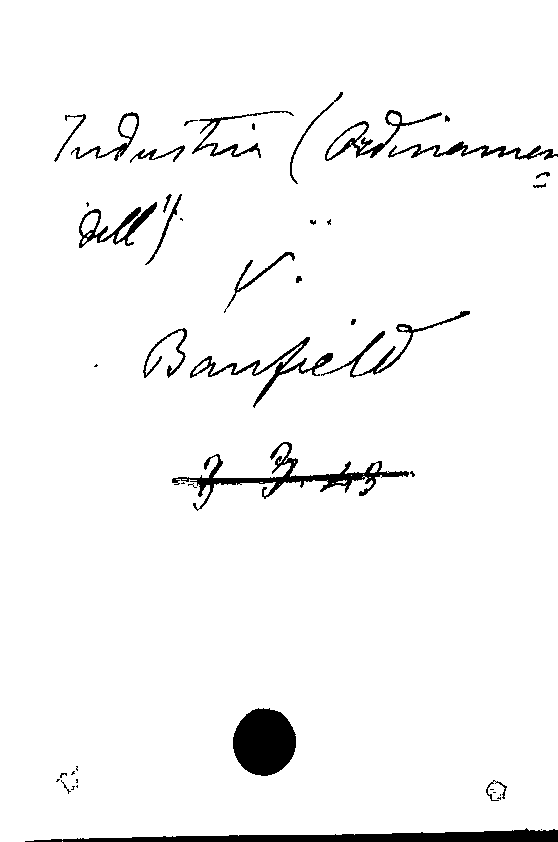 Industria (Ordinamen=
dell')
V.
Banfield
3 37. 43